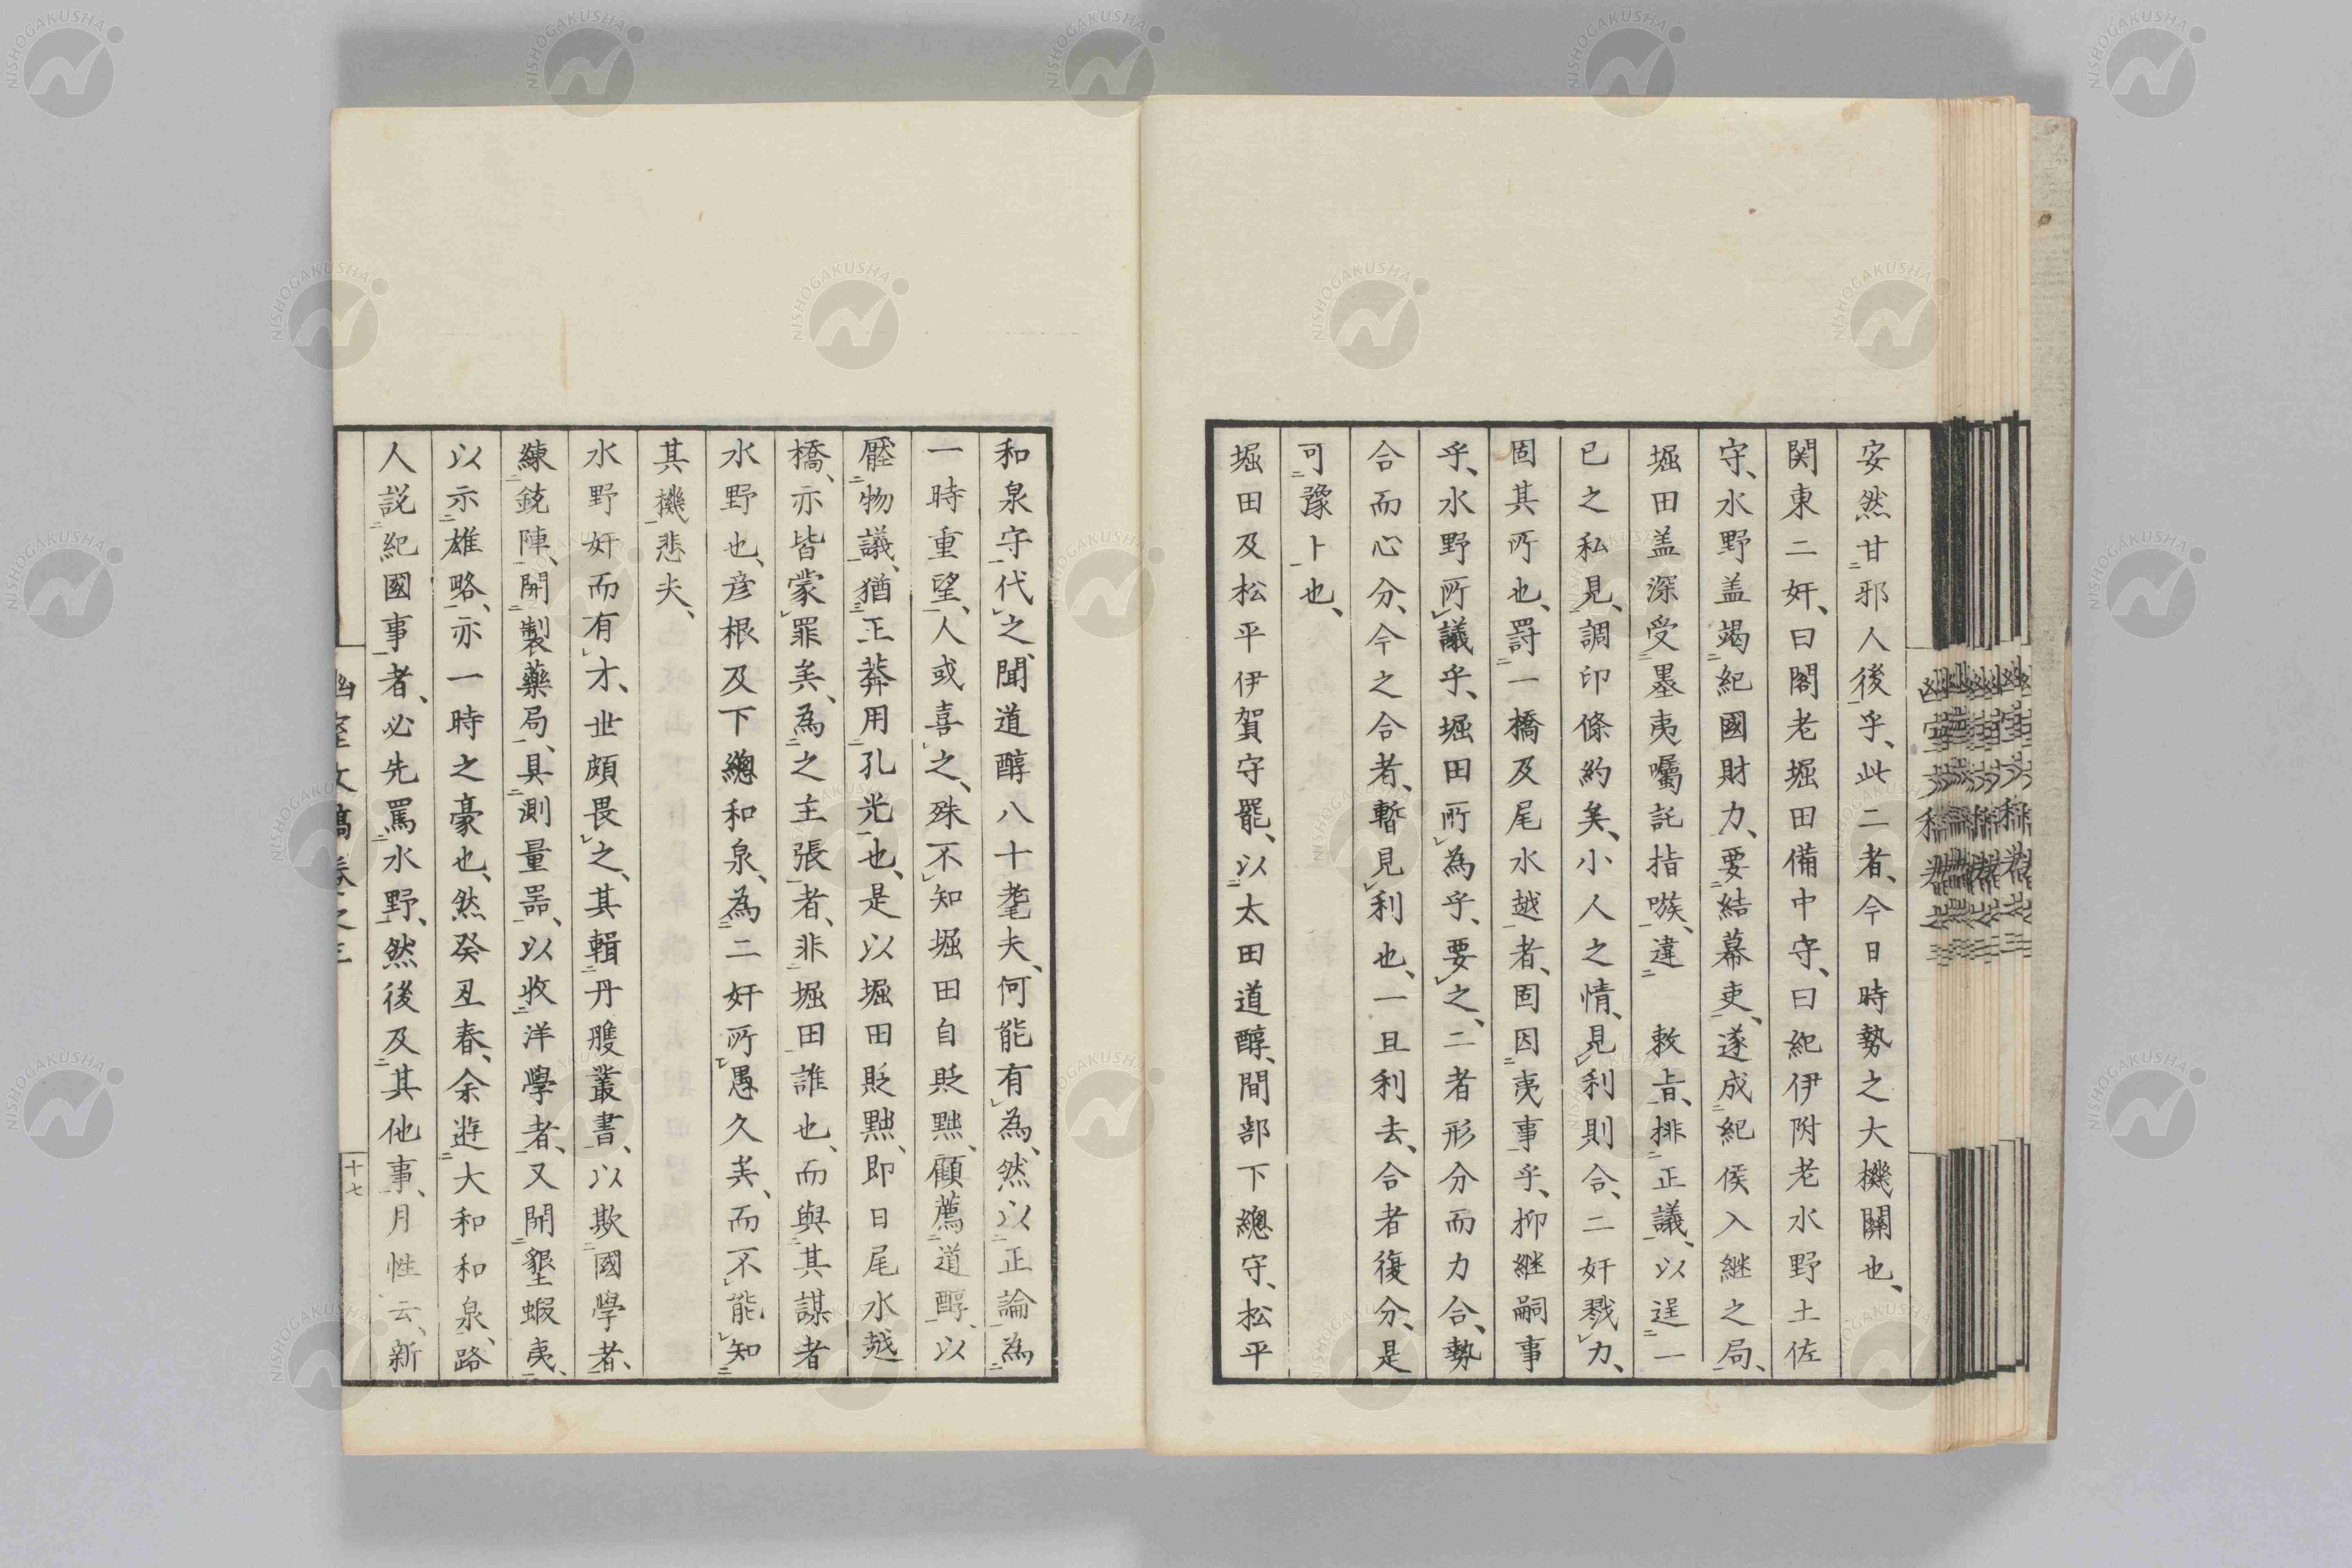 安然甘邪人後乎、此二者、今日時勢之大機關也、
関東二奸、曰閣老堀田備中守、曰紀伊附老水野土佐
守、水野盖竭紀國財力、要結幕吏、遂成紀侯入継之局、
堀田盖深受墨夷囑託指嗾、違　敕旨、排正議、以逞一
已之私見、調印條約矣、小人之情、見利則合、二奸戮力、
固其所也、罸一橋及尾水越者、固因夷事乎、抑継嗣事
乎、水野所議乎、堀田所為乎、要之、二者形分而力合、勢
合而心分、今之合者、暫見利也、一旦利去、合者復分、是
可豫卜也、
堀田及松平伊賀守罷、以太田道醇、間部下總守、松平
和泉守代之、聞道醇八十耄夫、何能有為、然以正論為
一時重望、人或喜之、殊不知堀田自貶黜、顧薦道醇、以
壓物議、猶王莽用孔光也、是以堀田貶黜、即日尾水越
橋、亦皆蒙罪矣、為之主張者、非堀田誰也、而與其謀者
水野也、彦根及下總和泉、為二奸所愚久矣、而不能知
其機悲夫、
水野奸而有才、世頗畏之、其輯丹雘叢書、以欺國學者、
練銃陣、開製藥局、具測量噐、以收洋學者、又開墾蝦夷、
以示雄略、亦一時之豪也、然癸丑春、余遊大和和泉、路
人説紀國事者、必先罵水野、然後及其他事、月性云、新
幽室文稿卷之三
十七
NISHOGAKUSHA